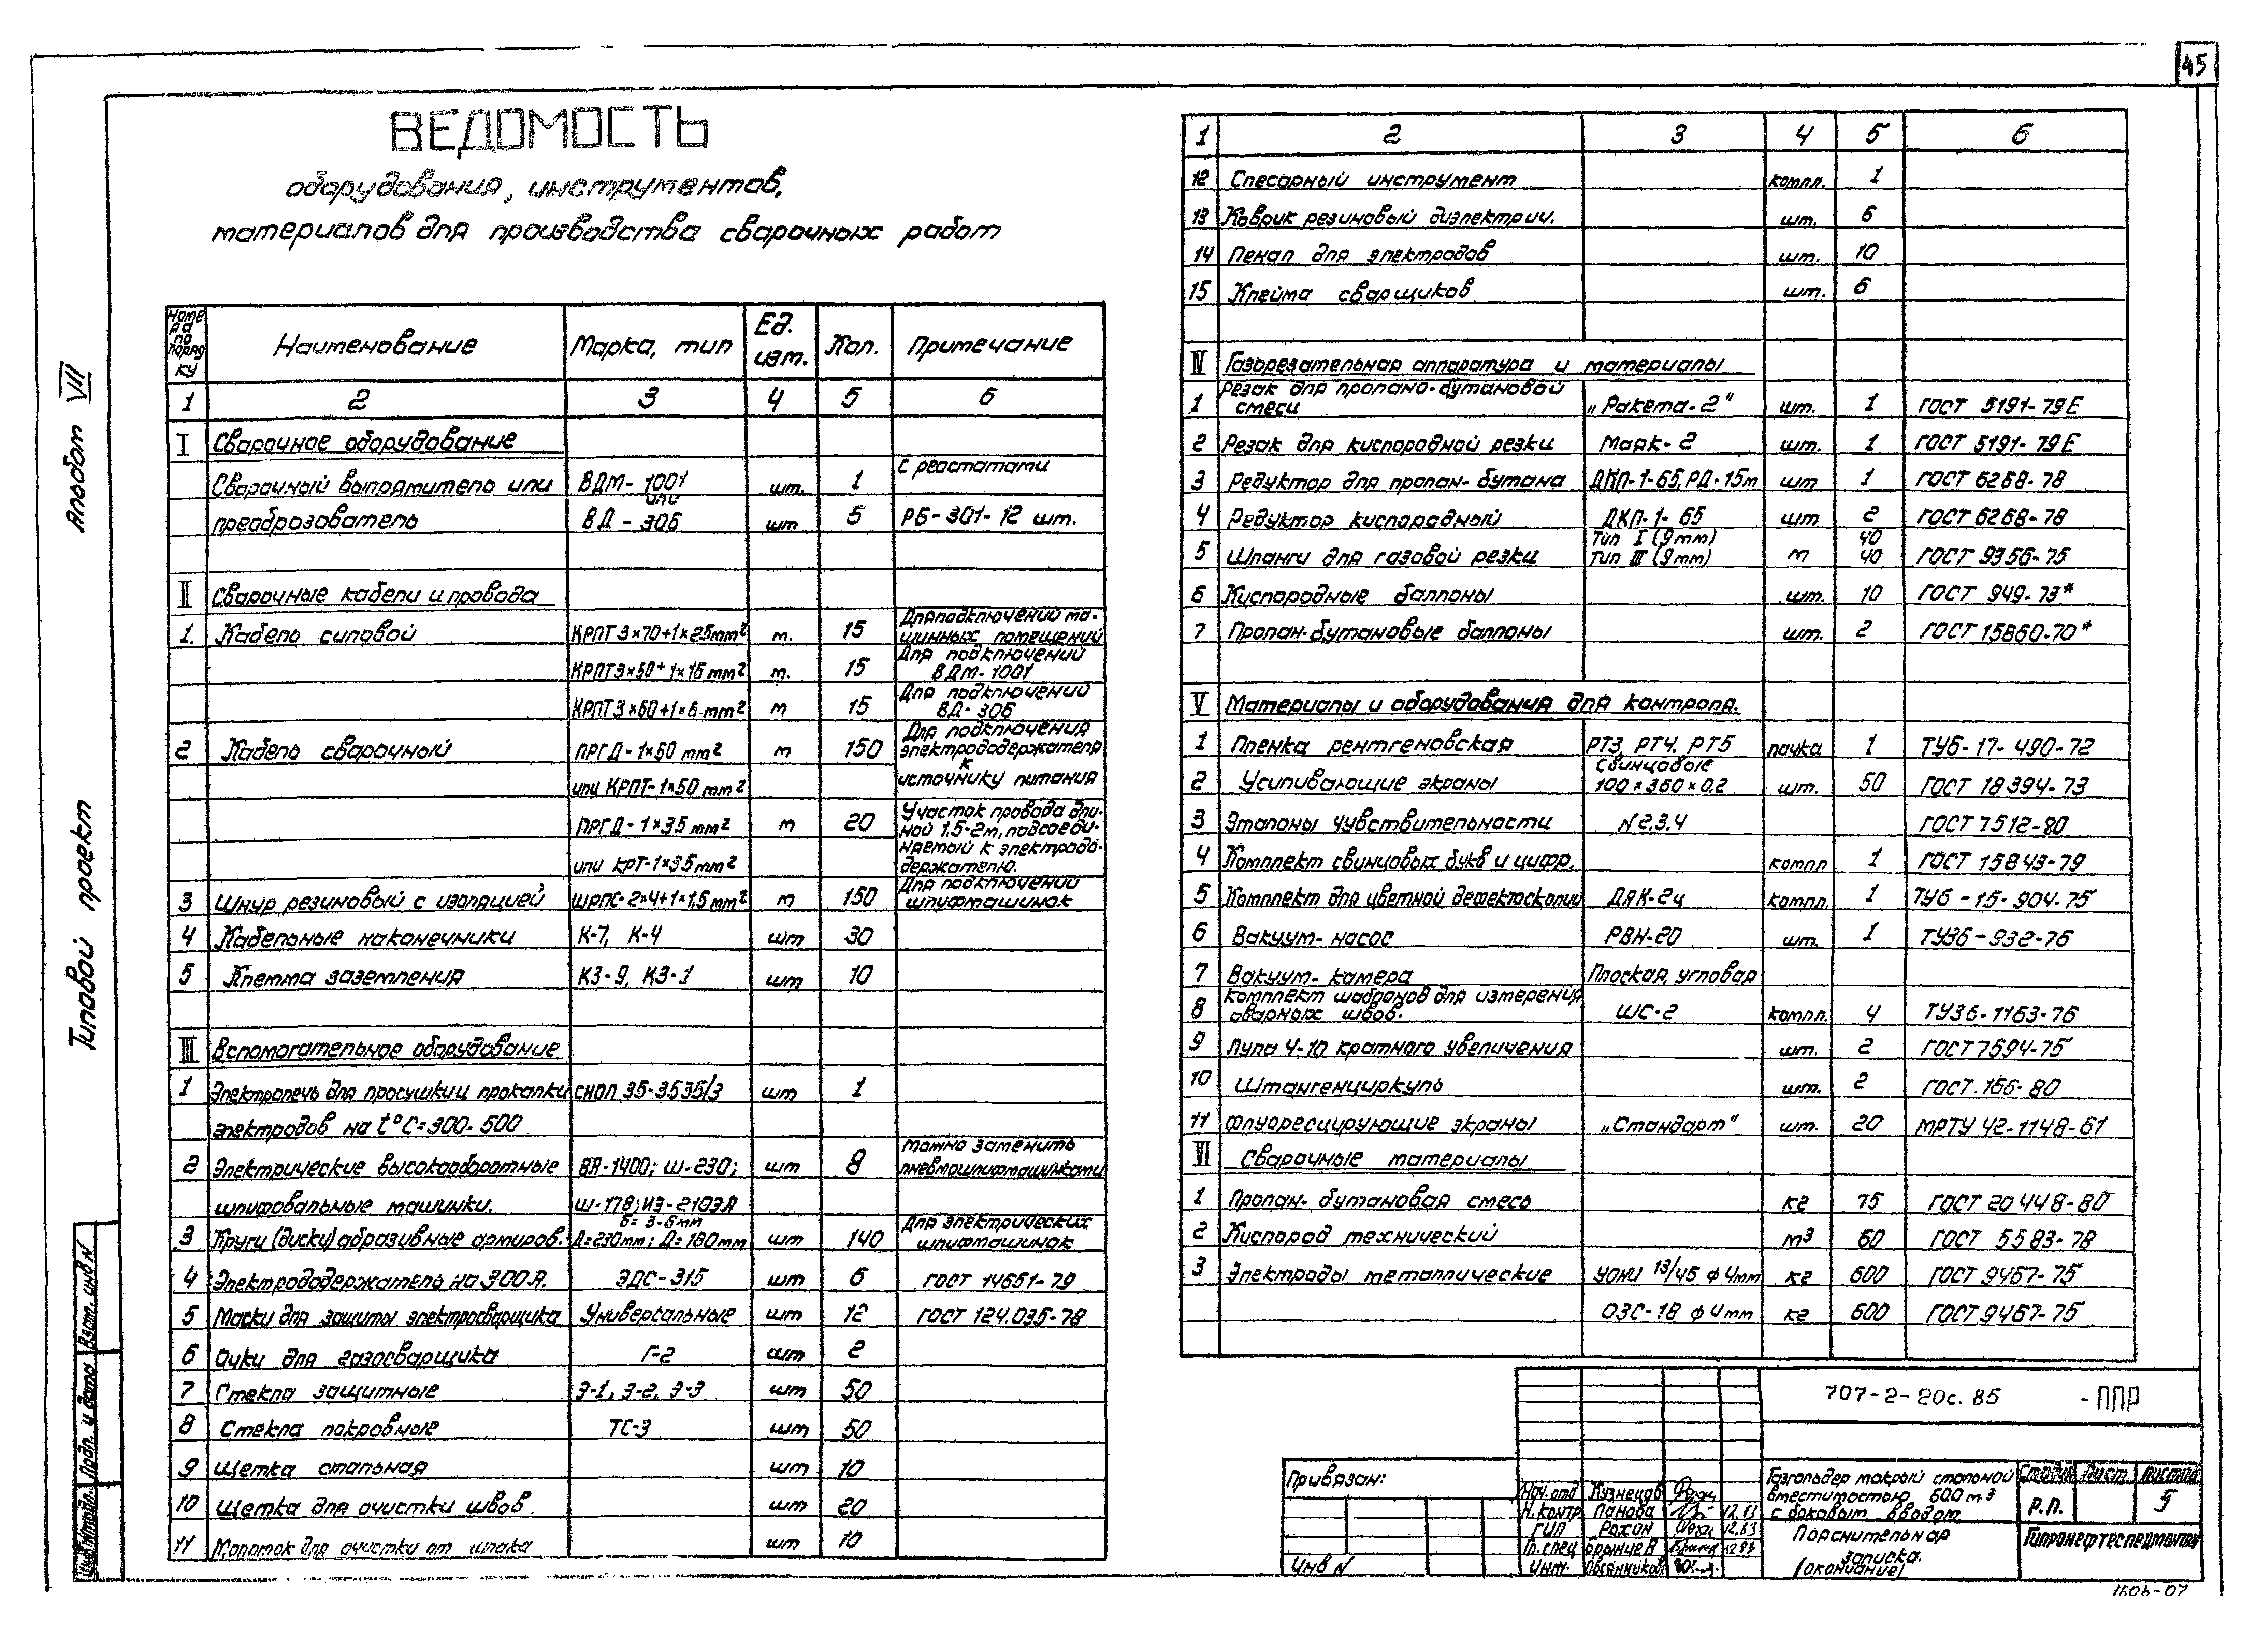 45
ВЕДОМОСТЬ
оборудования, инструментов,
материалов для производства сварочных работ
Альбом VII
Типовой проект
Номера по порядку | Наименование | Марка, тип | Ед. изм. | Кол. | Примечание
1 | 2 | 3 | 4 | 5 | 6
I Сварочное оборудование
Сварочный выпрямитель или | ВДМ-1001 | шт. | 1 | С реостатами
или
преоброзователь | ВД-306 | шт | 5 | РБ-301-12 шт.
II Сварочные кабели и провода
1. Кабель силовой | КРПТ 3×70+1×25мм² | м. | 15 | Для подключений машинных помещений
КРПТ 3×50+1×16мм² | м. | 15 | Для подключений ВДМ-1001
КРПТ 3×60+1×6мм² | м | 15 | Для подключений ВД-306
2 Кабель сварочный | ПРГД-1×50 мм² | м | 150 | Для подключения электрододержателя к источнику питания
или КРПТ-1×50мм²
ПРГД-1×35мм² | м | 20 | Участок провода длиной 1,5-2м, подсоединяемый к электрододержателю.
или КРТ-1×35мм²
3 Шнур резиновый с изоляцией | ШРПС-2×4+1×1,5мм² | м | 150 | Для подключений шлифмашинок
4 Кабельные наконечники | К-7, К-4 | шт | 30
5 Клемма заземления | КЗ-9, КЗ-1 | шт | 10
III Вспомогательное оборудование
1 Электропечь для просушки и прокалки | СНОЛ 35-3535/3 | шт | 1
электродов на t°С=300-500
2 Электрические высокооборотные | ВЯ-1400; Ш-230; | шт | 8 | можно заменить пневмошлифмашинками
шлифовальные машинки. | Ш-178; ИЭ-2103А
3 Круги (диски) абразивные армиров. | б=3-6мм Д=230мм; Д=180мм | шт | 140 | Для электрических шлифмашинок
4 Электрододержатель на 300А. | ЭДС-315 | шт | 6 | ГОСТ 14651-79
5 Маски для защиты электросварщика | Универсальные | шт | 12 | ГОСТ 124.035-78
6 Очки для газосварщика | Г-2 | шт | 2
7 Стекла защитные | Э-1, Э-2, Э-3 | шт | 50
8 Стекла покровные | ТС-3 | шт | 50
9 Щетка стальная | шт | 10
10 Щетка для очистки швов. | шт | 20
11 Молоток для очистки от шлака | шт | 10
1 | 2 | 3 | 4 | 5 | 6
12 Слесарный инструмент | компл. | 1
13 Коврик резиновый диэлектрич. | шт. | 6
14 Пенал для электродов | шт. | 10
15 Клейма сварщиков | шт. | 6
IV Газорезательная аппаратура и материалы
1 Резак для пропано-бутановой смеси | „Ракета-2" | шт. | 1 | ГОСТ 5191-79Е
2 Резак для кислородной резки | Маяк-2 | шт. | 1 | ГОСТ 5191-79Е
3 Редуктор для пропан-бутана | ДКП-1-65, РД-15м | шт | 1 | ГОСТ 6268-78
4 Редуктор кислородный | ДКП-1-65 | шт | 2 | ГОСТ 6268-78
5 Шланги для газовой резки | Тип I (9мм) Тип III (9мм) | м | 40 40 | ГОСТ 9356-75
6 Кислородные баллоны | шт. | 10 | ГОСТ 949-73*
7 Пропан-бутановые баллоны | шт. | 2 | ГОСТ 15860-70*
V Материалы и оборудования для контроля.
1 Пленка рентгеновская | РТ3, РТ4, РТ5 | пачка | 1 | ТУ6-17-490-72
2 Усиливающие экраны | Свинцовые 100×360×0,2 | шт. | 50 | ГОСТ 18394-73
3 Эталоны чувствительности | N2,3,4 | ГОСТ 7512-80
4 Комплект свинцовых букв и цифр. | компл | 1 | ГОСТ 15843-79
5 Комплект для цветной дефектоскопии | ДАК-2ц | компл. | 1 | ТУ6-15-904-75
6 Вакуум-насос | РВН-20 | шт. | 1 | ТУ36-932-76
7 Вакуум-камера | Плоская, угловая
8 Комплект шаблонов для измерения сварных швов. | ШС-2 | компл. | 4 | ТУ36-1163-76
9 Лупа 4-10 кратного увеличения | шт. | 2 | ГОСТ 7594-75
10 Штангенциркуль | шт. | 2 | ГОСТ.166-80
11 Флуоресцирующие экраны | „Стандарт" | шт. | 20 | МРТУ 42-1148-61
VI Сварочные материалы
1 Пропан-бутановая смесь | кг | 75 | ГОСТ 20448-80
2 Кислород технический | м³ | 60 | ГОСТ 5583-78
3 Электроды металлические | УОНИ 13/45 ф4мм | кг | 600 | ГОСТ 9467-75
ОЗС-18 ф4мм | кг | 600 | ГОСТ 9467-75
707-2-20с.85 -ППР
Привязан:
Инв N
Нач.отд Кузнецов
Н.контр Панова 12.83
ГИП Рохин 12.83
Гл.спец Брынцев 12.83
Инж. Овсянников
Газгольдер мокрый стальной
вместимостью 600м3
с боковым вводом
Стадия | Лист | Листов
Р.П. | 5
Пояснительная
записка.
(окончание)
Гипронефтеспецмонтаж
Взам. инв N
Подп. и дата
Инв N подл.
1606-07